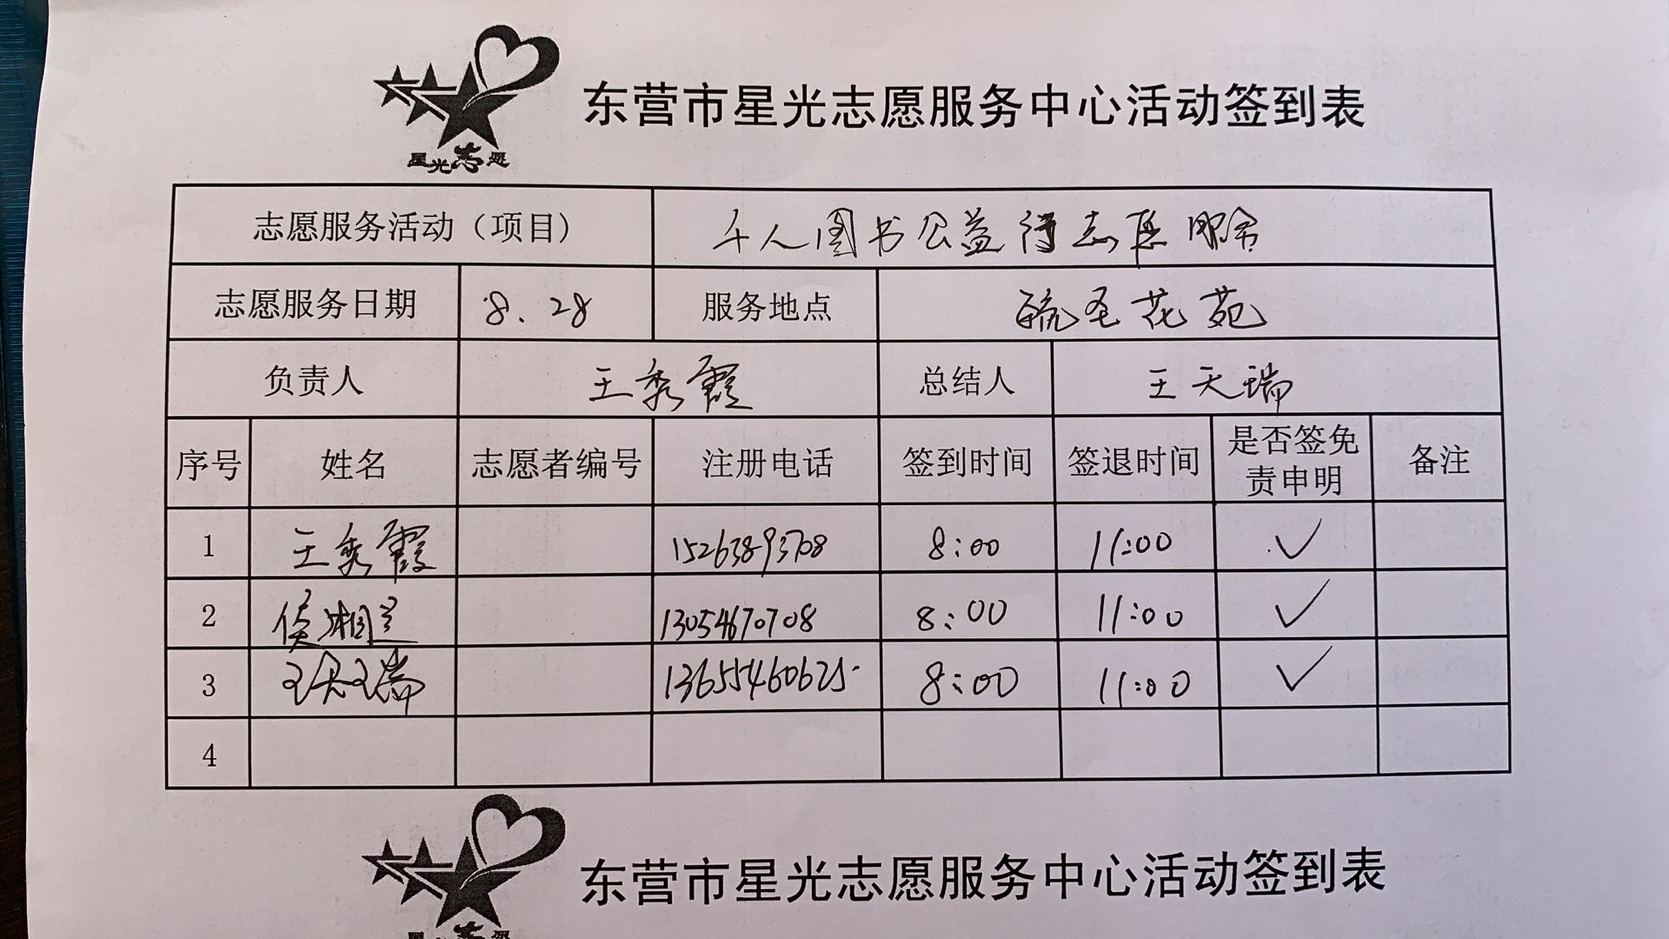 星光志愿
东营市星光志愿服务中心活动签到表
志愿服务活动（项目） 千人图书公益行志愿服务
志愿服务日期 8.28 服务地点 毓圣花苑
负责人 王秀霞 总结人 王天瑞
序号 姓名 志愿者编号 注册电话 签到时间 签退时间 是否签免
责申明 备注
1 王秀霞 15263893708 8:00 11:00 ✓
2 侯湘 13054670708 8:00 11:00 ✓
3 王天瑞 13655460625 8:00 11:00 ✓
4
东营市星光志愿服务中心活动签到表